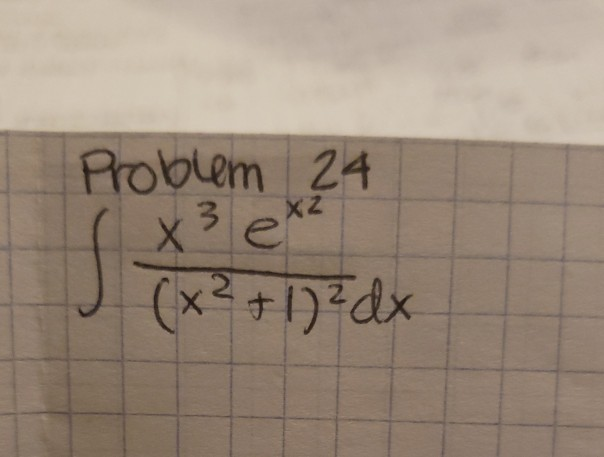 Problem 24
∫ x³ e^x2
(x² + 1)² dx